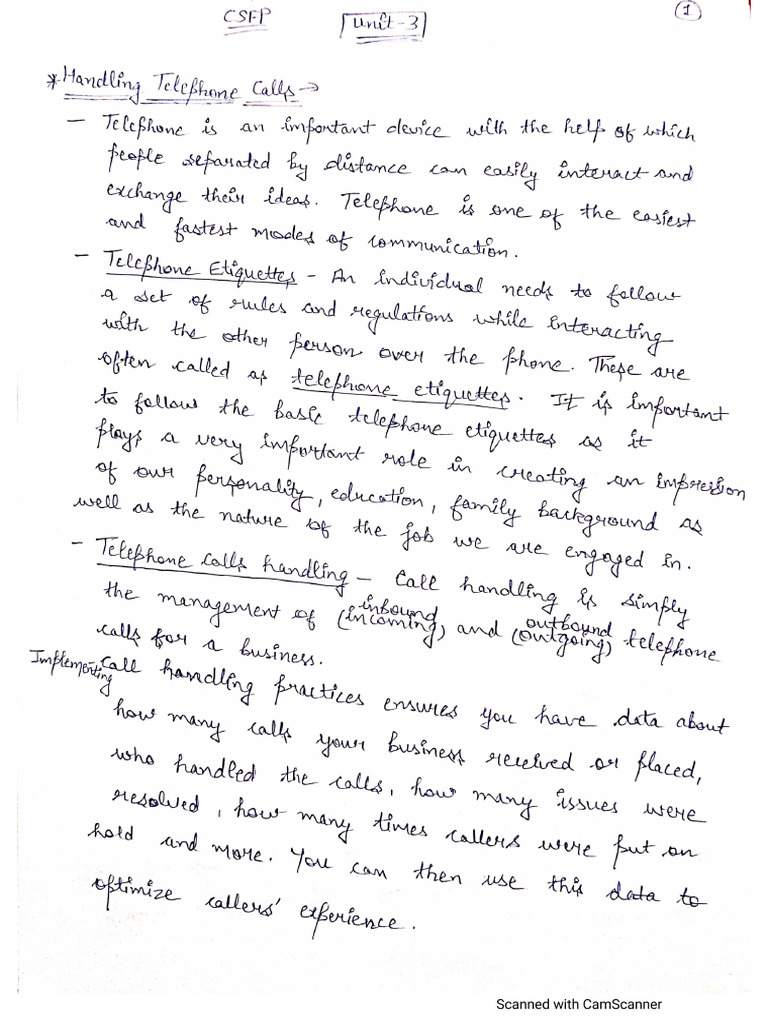 CSFP
Unit-3
1
* Handling Telephone Calls →
- Telephone is an important device with the help of which
people separated by distance can easily interact and
exchange their ideas. Telephone is one of the easiest
and fastest modes of communication.
- Telephone Etiquettes - An individual needs to follow
a set of rules and regulations while interacting
with the other person over the phone. These are
often called as telephone etiquettes. It is important
to follow the basic telephone etiquettes as it
plays a very important role in creating an impression
of our personality, education, family background as
well as the nature of the job we are engaged in.
- Telephone calls handling - Call handling is simply
the management of inbound (incoming) and outbound (outgoing) telephone
calls for a business.
Implementing call handling practices ensures you have data about
how many calls your business received or placed,
who handled the calls, how many issues were
resolved, how many times callers were put on
hold and more. You can then use this data to
optimize callers' experience.
Scanned with CamScanner